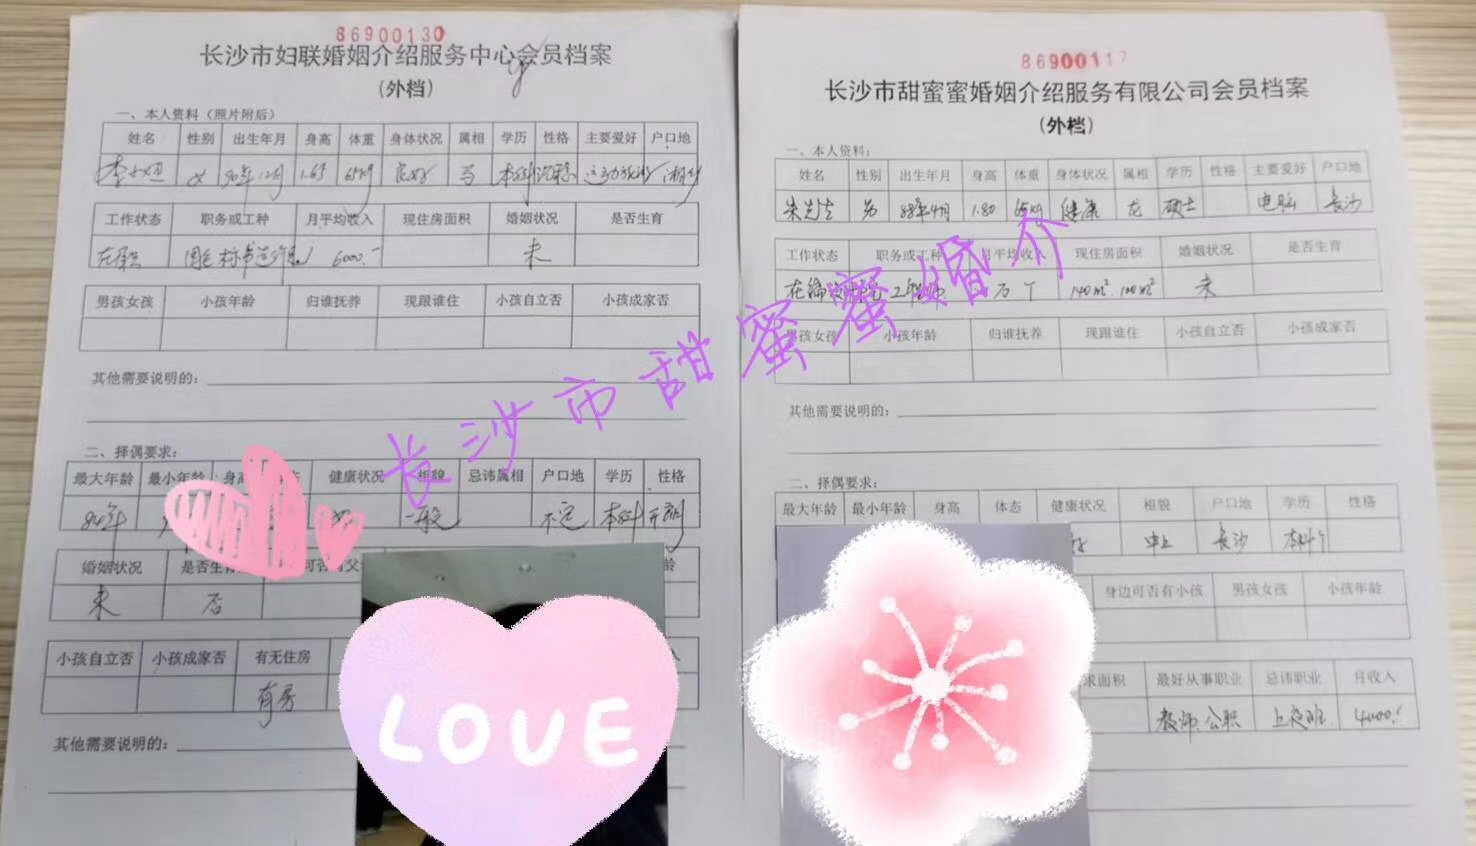 86900130
长沙市妇联婚姻介绍服务中心会员档案
(外档)
一、本人资料（照片附后）
姓名 性别 出生年月 身高 体重 身体状况 属相 学历 性格 主要爱好 户口地
女 90年12月 1.65 65kg 良好 马 本科
工作状态 职务或工种 月平均收入 现住房面积 婚姻状况 是否生育
在职 6000.- 未
男孩女孩 小孩年龄 归谁抚养 现跟谁住 小孩自立否 小孩成家否
其他需要说明的：
二、择偶要求：
最大年龄 最小年龄 身高 健康状况 相貌 忌讳属相 户口地 学历 性格
84年 一般 不定 本科 开朗
婚姻状况 是否生育
未 否
小孩自立否 小孩成家否 有无住房
有房
其他需要说明的：
86900117
长沙市甜蜜蜜婚姻介绍服务有限公司会员档案
(外档)
一、本人资料：
姓名 性别 出生年月 身高 体重 身体状况 属相 学历 性格 主要爱好 户口地
朱先生 男 88年4月 1.80 65kg 健康 龙 硕士 电脑 长沙
工作状态 职务或工种 月平均收入 现住房面积 婚姻状况 是否生育
在编 工程师 万个 140m² 100m² 未
男孩女孩 小孩年龄 归谁抚养 现跟谁住 小孩自立否 小孩成家否
其他需要说明的：
二、择偶要求：
最大年龄 最小年龄 身高 体态 健康状况 相貌 户口地 学历 性格
中上 长沙 本科
身边可否有小孩 男孩女孩 小孩年龄
求面积 最好从事职业 忌讳职业 月收入
教师.公职 上夜班 4000.
长沙市甜蜜蜜婚介
LOVE